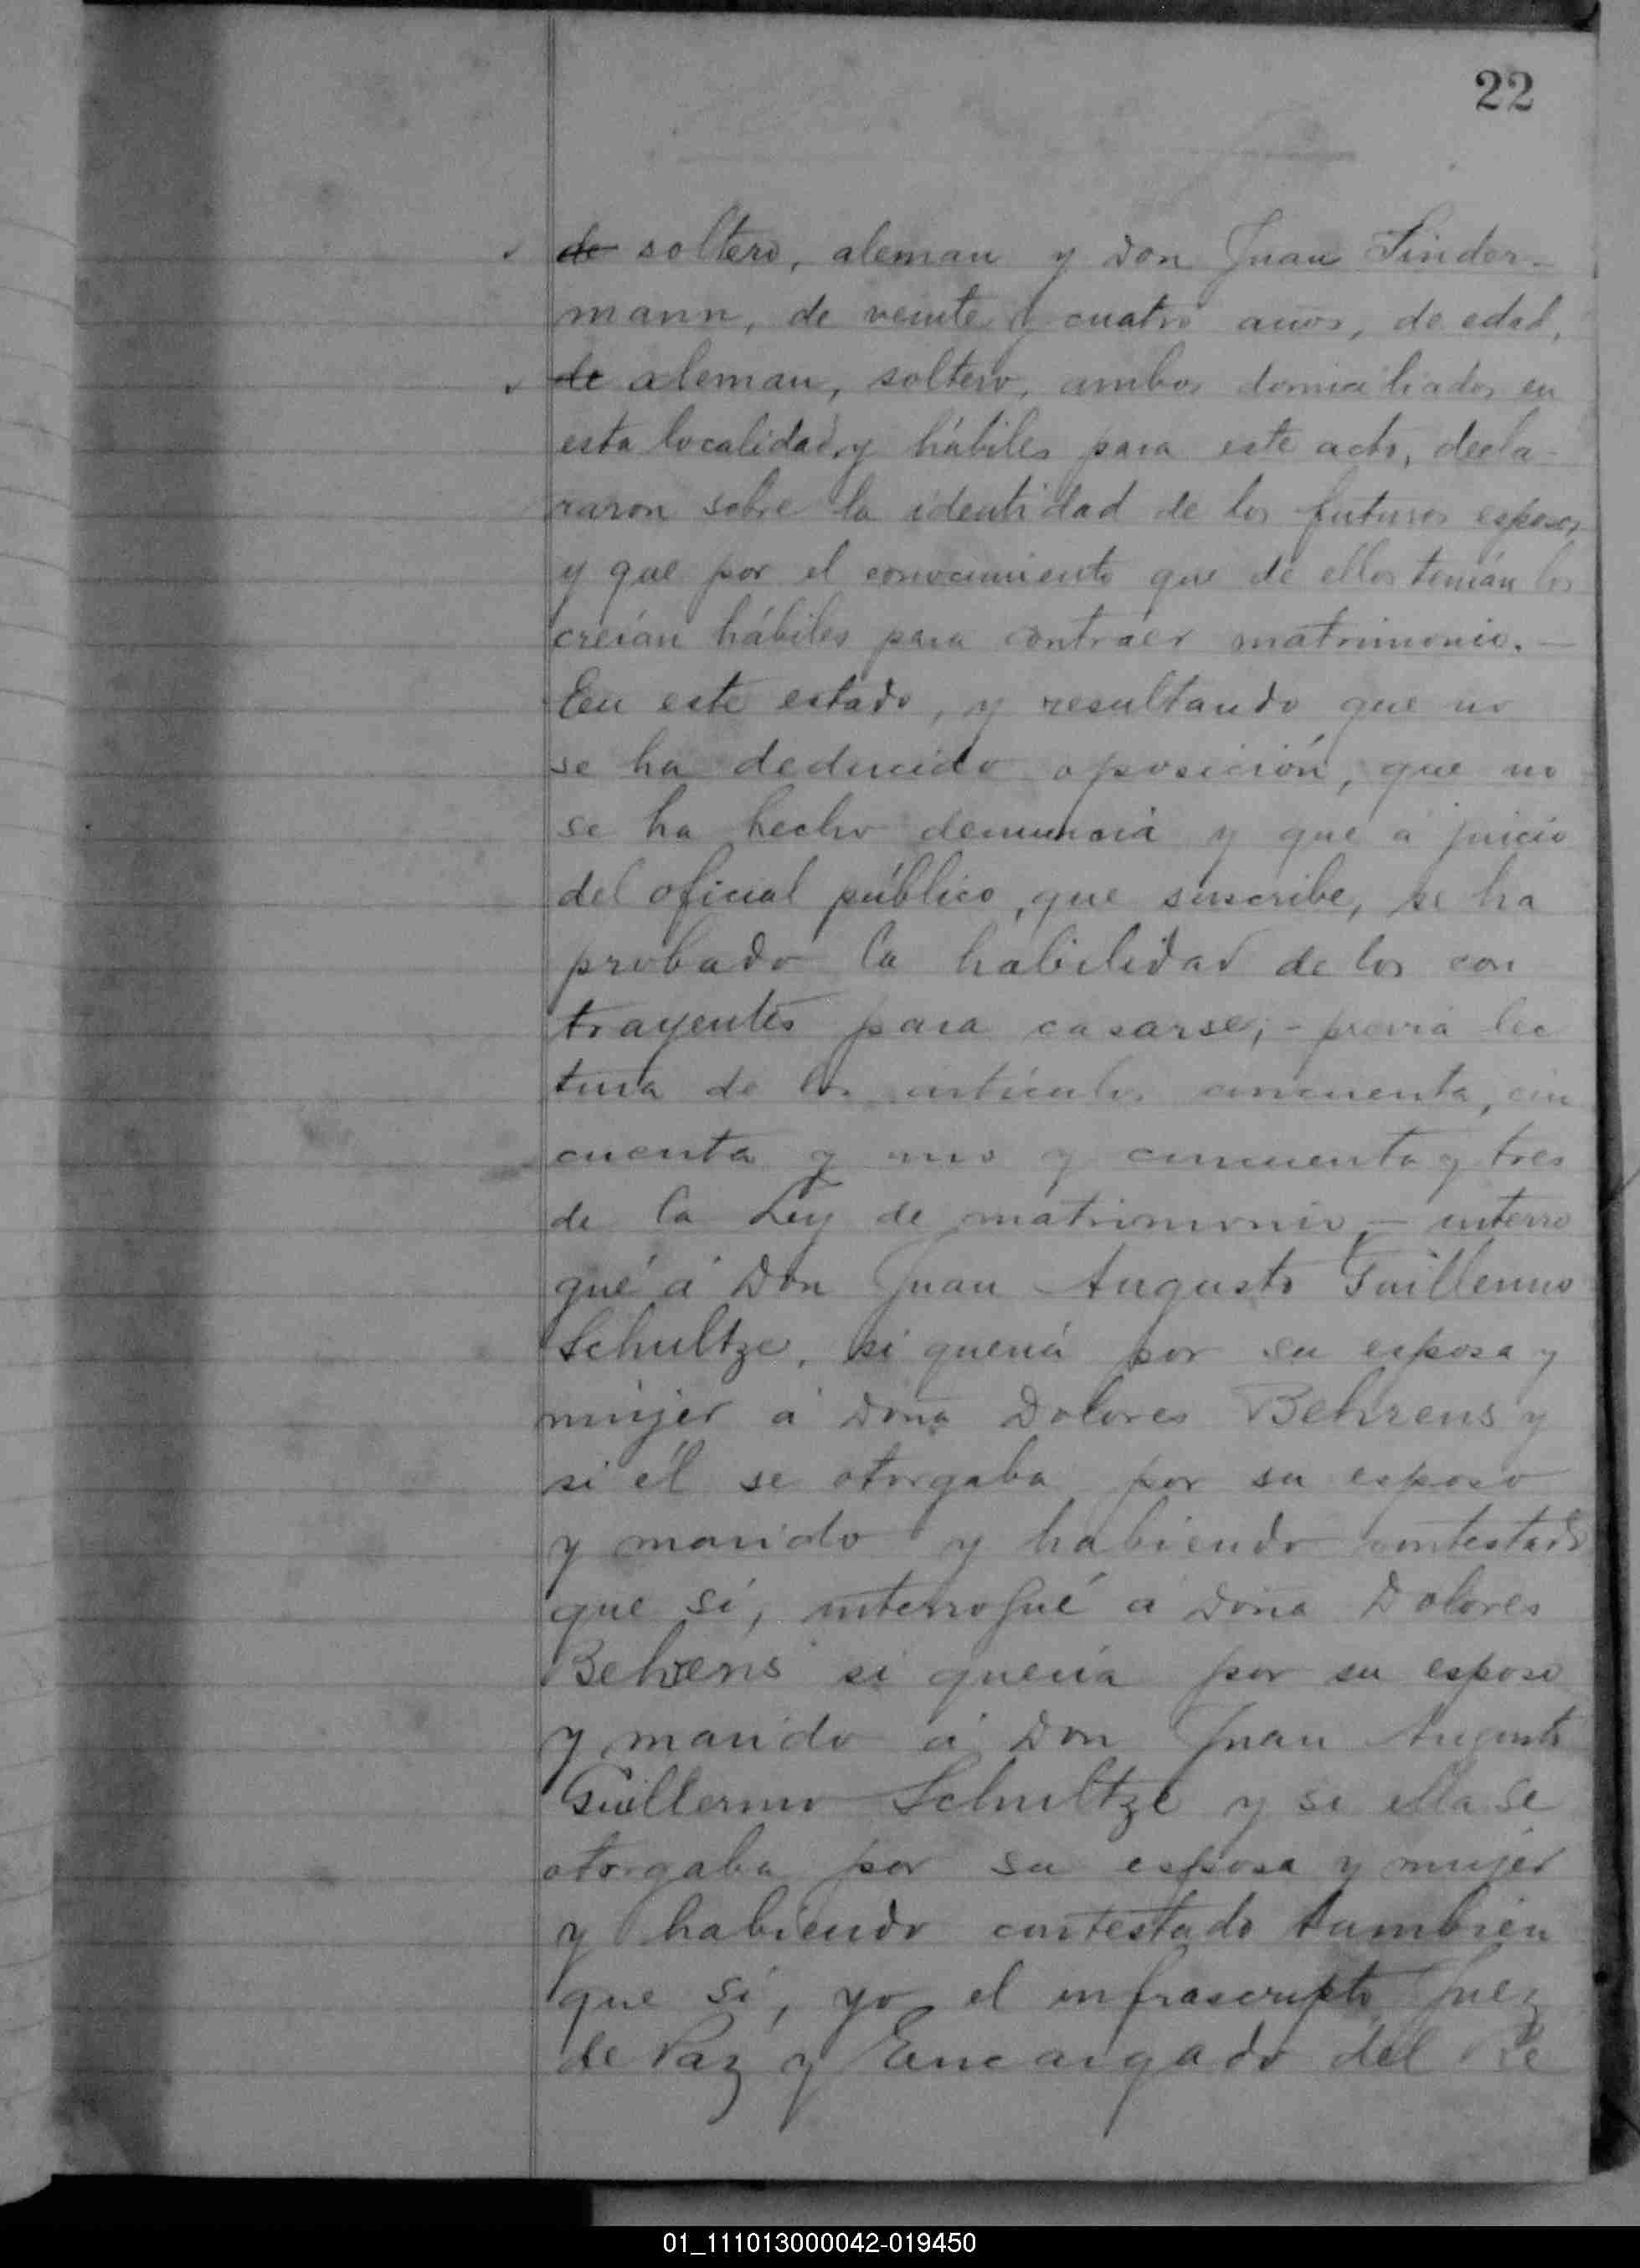 22
de soltero, aleman y Don Juan Linder-
mann, de veinte y cuatro años, de edad,
de aleman, soltero, ambos domiciliados en
esta localidad, y hábiles para este acto, decla-
raron sobre la identidad de los futuros esposos
y que por el conocimiento que de ellos tenían los
creían hábiles para contraer matrimonio. —
En este estado, y resultando que no
se ha deducido oposición, que no
se ha hecho denuncia y que á juicio
del oficial público, que suscribe, se ha
probado la habilidad de los con
trayentes para casarse; - previa lec
tura de los artículos cincuenta, cin
cuenta y uno y cincuenta y tres
de la Ley de matrimonio, - interro
gué á Don Juan Augusto Guillermo
Schultze, si quería por su esposa y
mujer á Doña Dolores Behrens y
si él se otorgaba por su esposo
y marido y habiendo contestado
que sí, interrogué á Doña Dolores
Behrens si quería por su esposo
y marido á Don Juan Augusto
Guillermo Schultze y si ella se
otorgaba por su esposa y mujer
y habiendo contestado tambien
que sí, yo el infrascripto Juez
de Paz y Encargado del Re
01_111013000042-019450